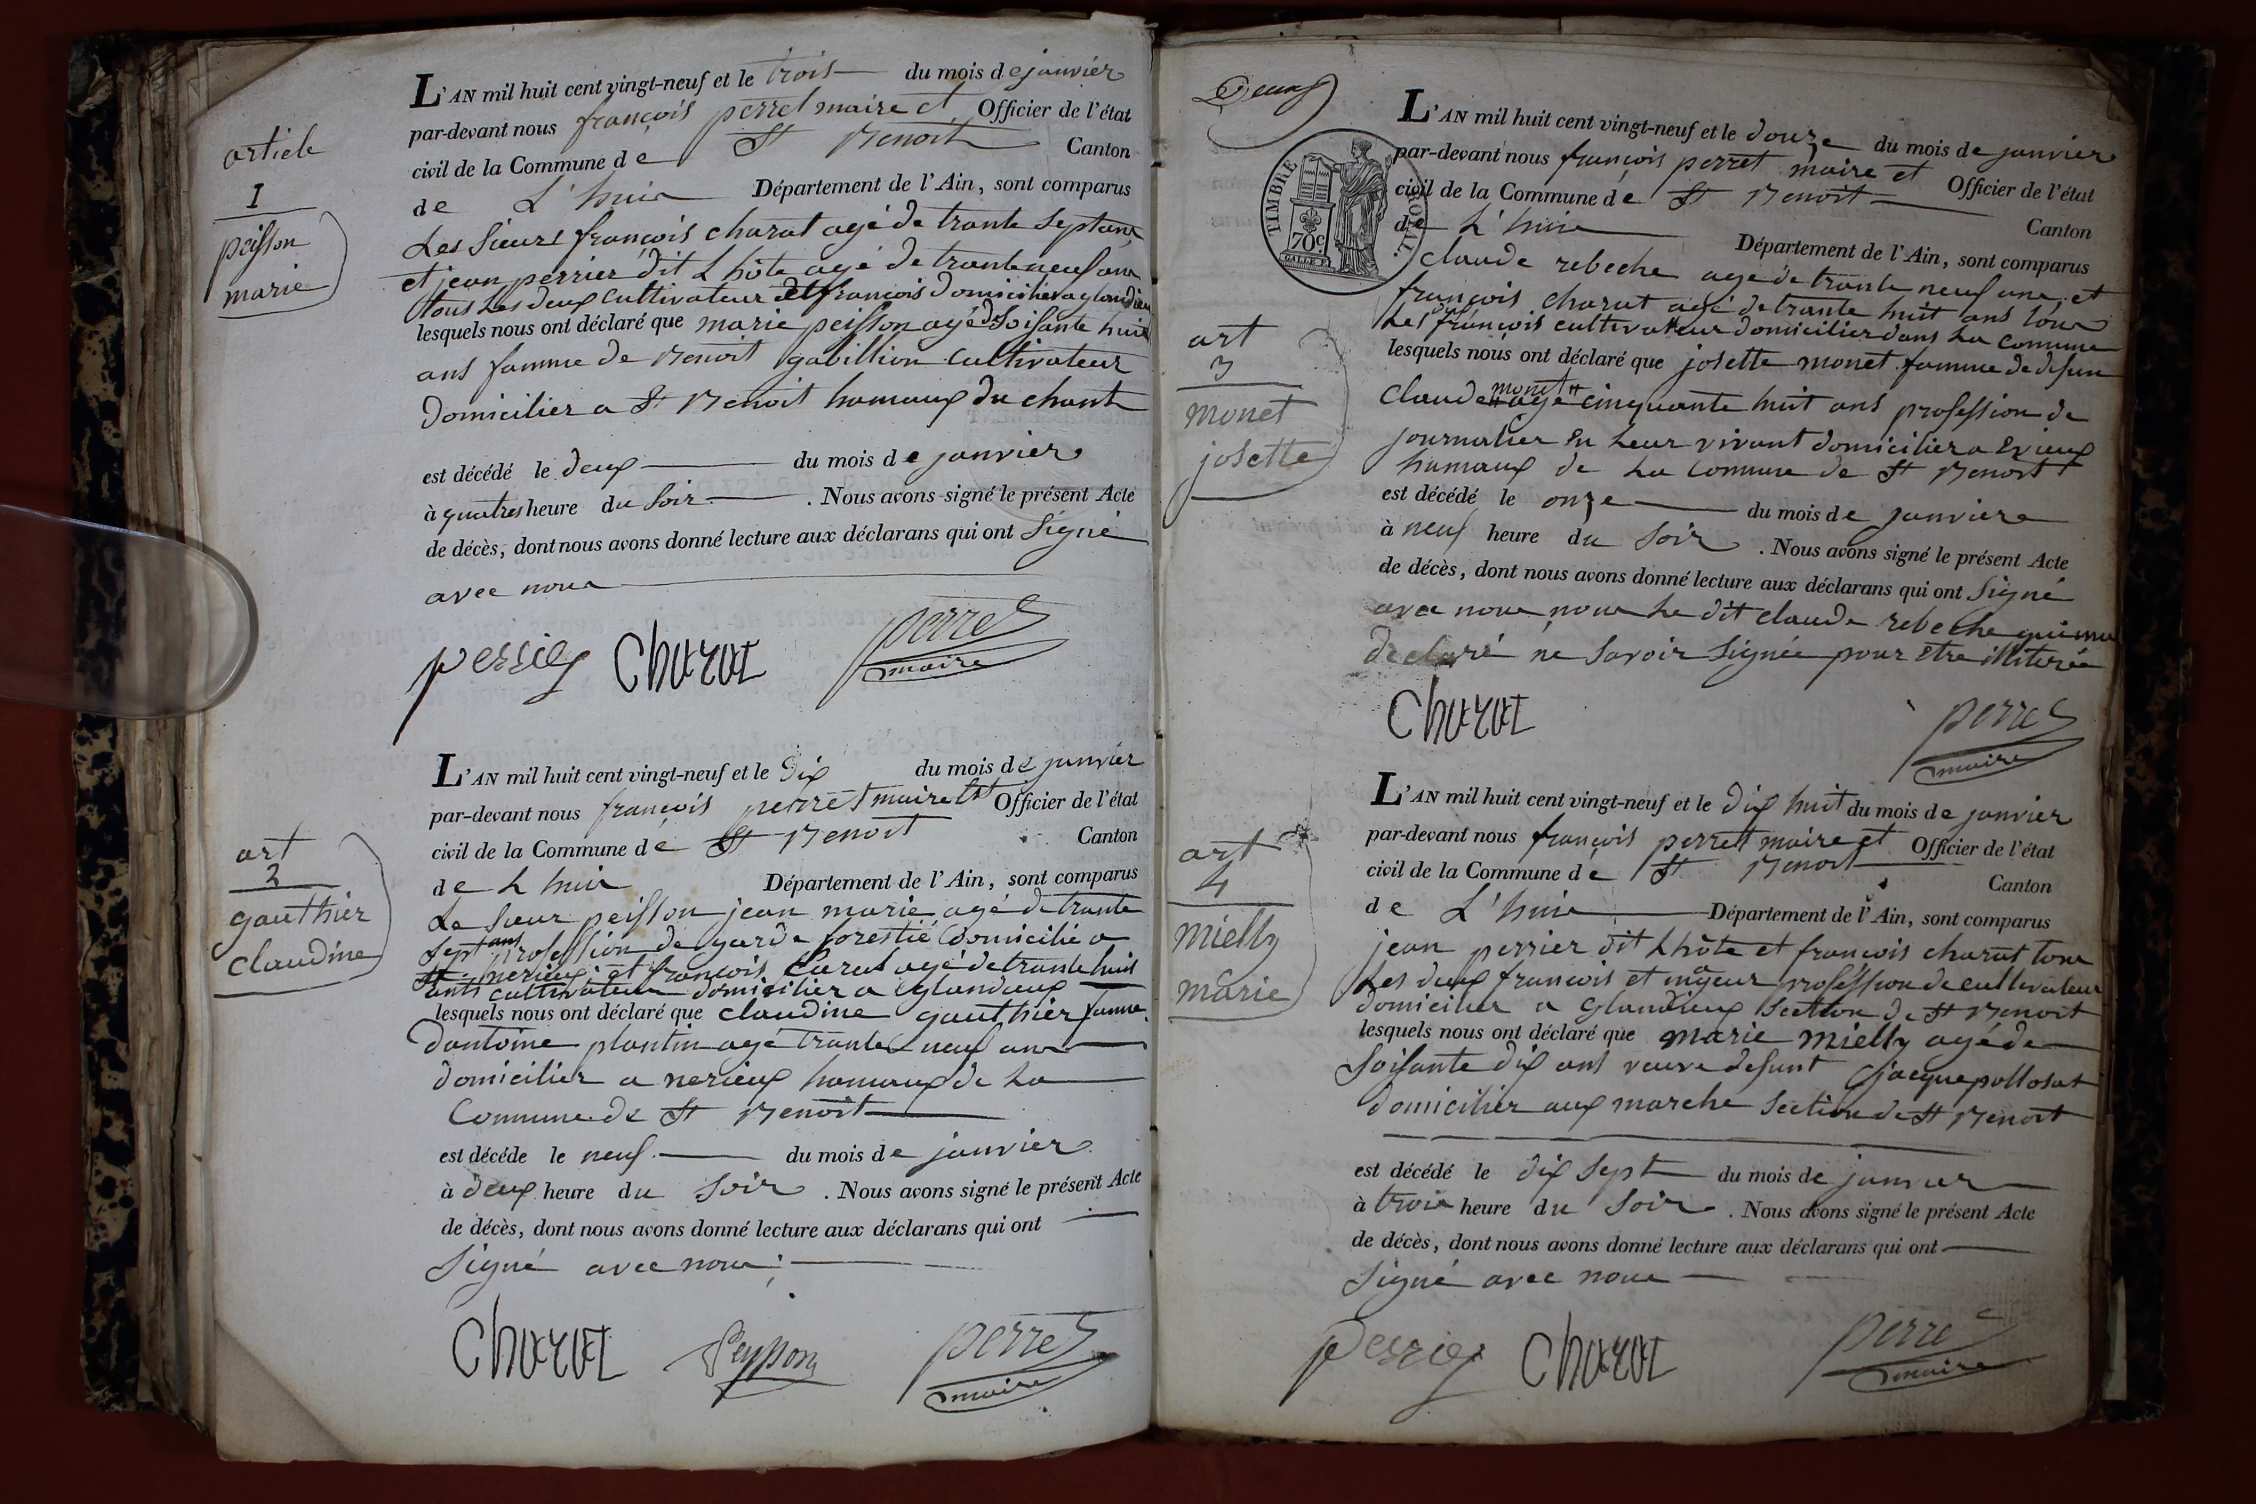 article
I
peisson
marie
L'AN mil huit cent vingt-neuf et le trois du mois de janvier
par-devant nous françois perret maire et Officier de l'état
civil de la Commune de St Benoit Canton
de L'huis Département de l'Ain, sont comparus
Les sieurs françois charat agé de trante sept ans
et jean perrier dit L hôte agé de trante neuf ans
tous Les deux cultivateur et françois domicilier a glandieu
lesquels nous ont déclaré que marie peisson agé de soisante huit
ans famme de Benoit gabillion cultivateur
domicilier a St Benoit hamaux du chant
est décédé le deux du mois de janvier
à quatres heure du soir. Nous avons signé le présent Acte
de décès, dont nous avons donné lecture aux déclarans qui ont signé
avec nous
perrier Charat perret
maire
art
2
gauthier
claudine
L'AN mil huit cent vingt-neuf et le dix du mois de janvier
par-devant nous françois perret maire et Officier de l'état
civil de la Commune de St Benoit Canton
de L huis Département de l'Ain, sont comparus
Le sieur peisson jean marie agé de trante
sept ans profession de garde forestié domicilié a
nerieux et françois Carat agé de trante huit
ants cultivateur domicilier a glandieux
lesquels nous ont déclaré que claudine gauthier famme
dantoine plantin agé trante neuf ans
domicilier a nerieux hamaux de La
Commune de St Benoit
est décéde le neuf du mois de janvier
à deux heure du soir. Nous avons signé le présent Acte
de décès, dont nous avons donné lecture aux déclarans qui ont
signé avec nous;
Charat Peysson perret
maire
Deux
TIMBRE ROYAL.
70c.
art
3
monet
josette
L'AN mil huit cent vingt-neuf et le douze du mois de janvier
par-devant nous françois perret maire et Officier de l'état
civil de la Commune de St Benoit Canton
de L'huis Département de l'Ain, sont comparus
claude rebeche age de trante neuf ans et
françois charat agé de trante huit ans tous
Les françois cultivateur domicilier dans La commune
lesquels nous ont déclaré que josette monet famme de defun
Claude monet agé cinquante huit ans profession de
journalier en Leur vivant domicilier a
hamaux de La commune de St Benoit
est décédé le onze du mois de janviere
à neuf heure du soir. Nous avons signé le présent Acte
de décès, dont nous avons donné lecture aux déclarans qui ont signé
avec nous nous Le dit claude rebeche qui
declaré ne savoir signée pour être illiterée
Charat perret
maire
art
4
mielly
marie
L'AN mil huit cent vingt-neuf et le dix huit du mois de janvier
par-devant nous françois perret maire et Officier de l'état
civil de la Commune de St Benoit Canton
de L'huis Département de l'Ain, sont comparus
jean perrier dit L hôte et françois charat tous
Les deux françois et majeur profession de cultivateur
domicilier a glandieux section de St Benoit
lesquels nous ont déclaré que marie mielly agé de
soisante dix ans veuve defunt jacque pollosat
domicilier aux marche section de St Benoit
est décédé le dix sept du mois de janvier
à trois heure du soir. Nous avons signé le présent Acte
de décès, dont nous avons donné lecture aux déclarans qui ont
signé avec nous
perrier Charat perret
maire